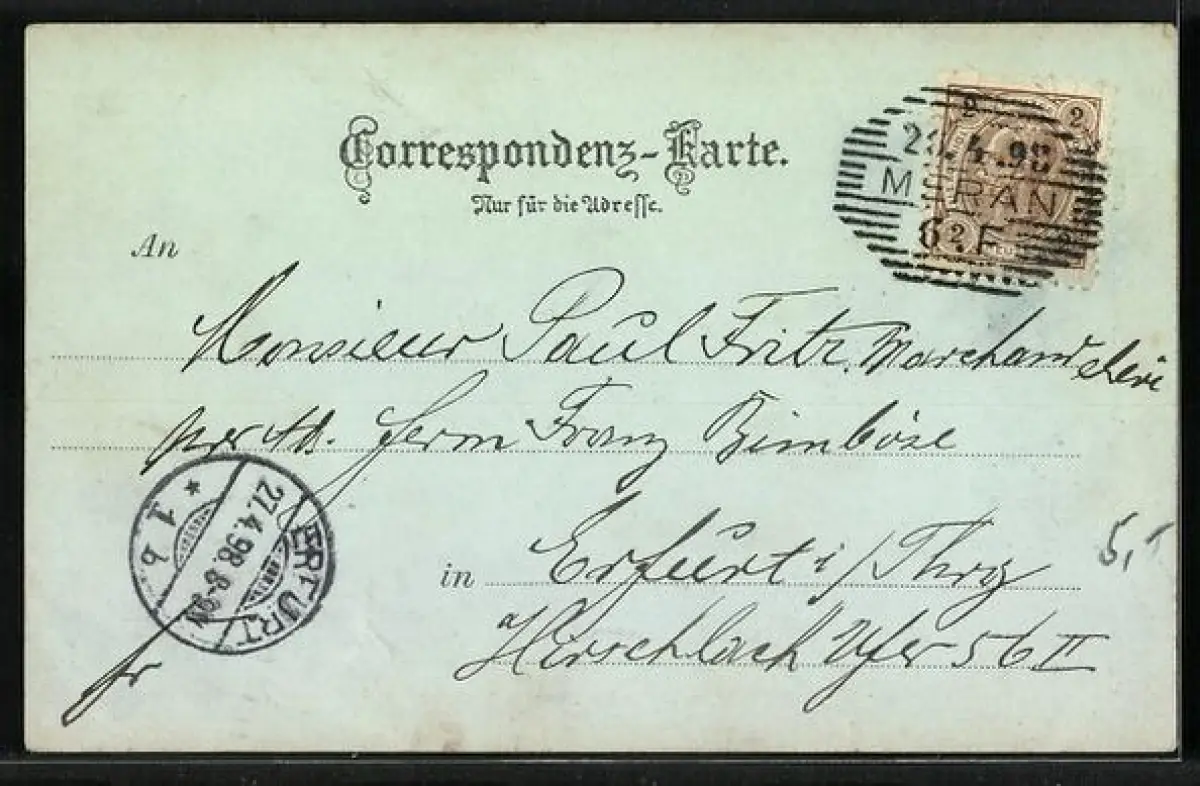 Correspondenz-Karte.
Nur für die Adresse.
2 2
4.98
MERAN
6.F
2
An
Monsieur Paul Fritz, Marchand
per Ad. Herrn Franz Bimböse
ERFURT
27.4.98.8-9N
* 1 b.
in Erfurt i/Thrg
Hirschlach Ufer 56 II
fr
5,